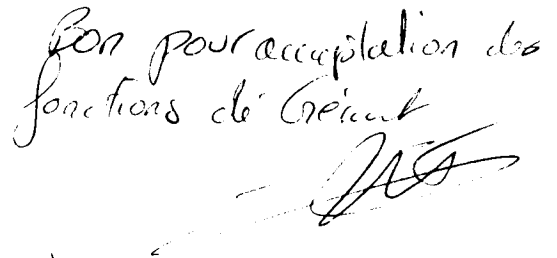 Bon pour acceptation des
fonctions de Gérant